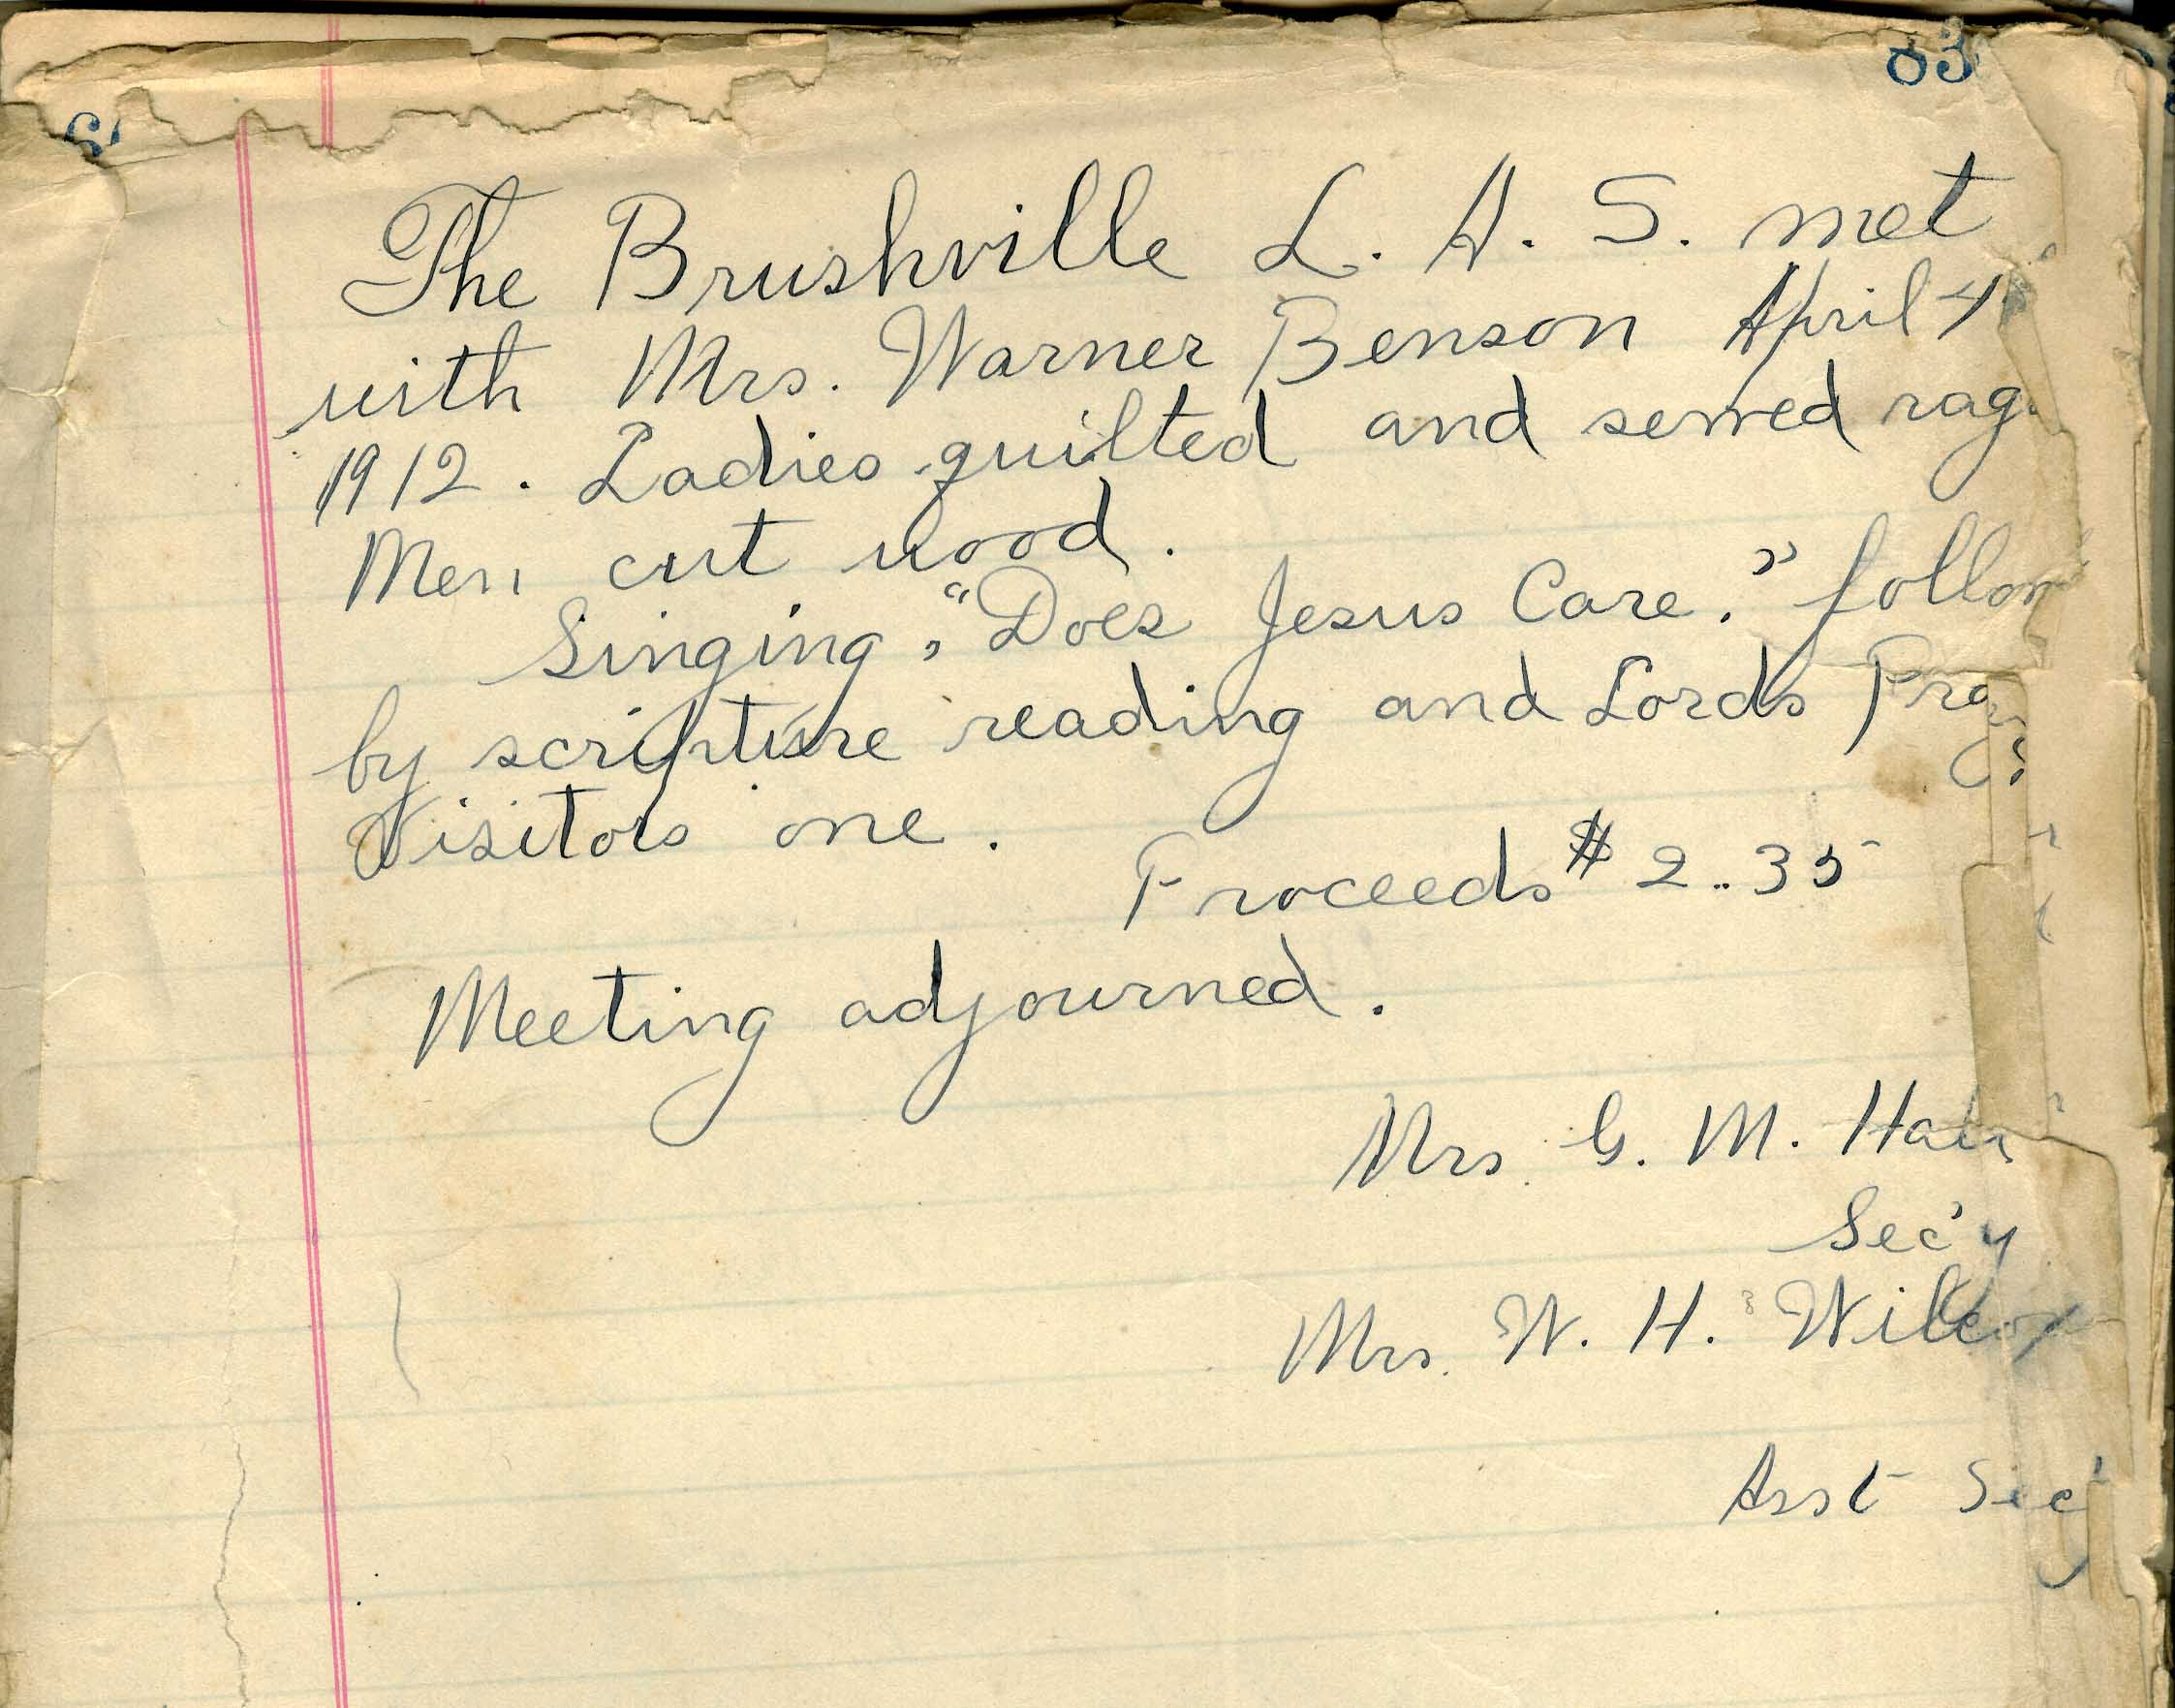 83
The Brushville L. A. S. met
with Mrs. Warner Benson April 4
1912. Ladies quilted and sewed rag
Men cut wood.
Singing, "Does Jesus Care." follow
by scripture reading and Lords Pray
Visitors one.
Proceeds $2.35
Meeting adjourned.
Mrs. G. M.
Sec'y
Mrs. W. H. Wilcox
Asst Sec'y